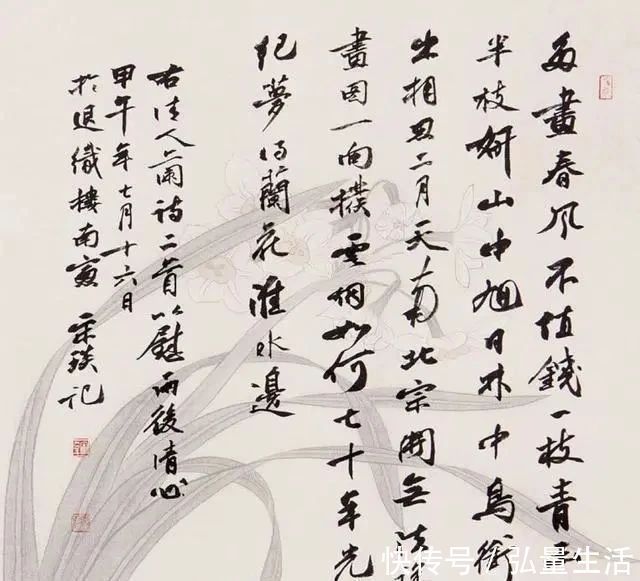 多畫春风不值錢一枝青玉
半枝妍山中旭日林中鳥銜
出相思二月天南北宗開無法
畫圖一向撲雲烟如何七十年光
紀夢得蘭花淮水邊
右清人蘭詩二首以慰雨後清心
甲午年七月十六日
於退織樓南窗 记
快传号/弘量生活